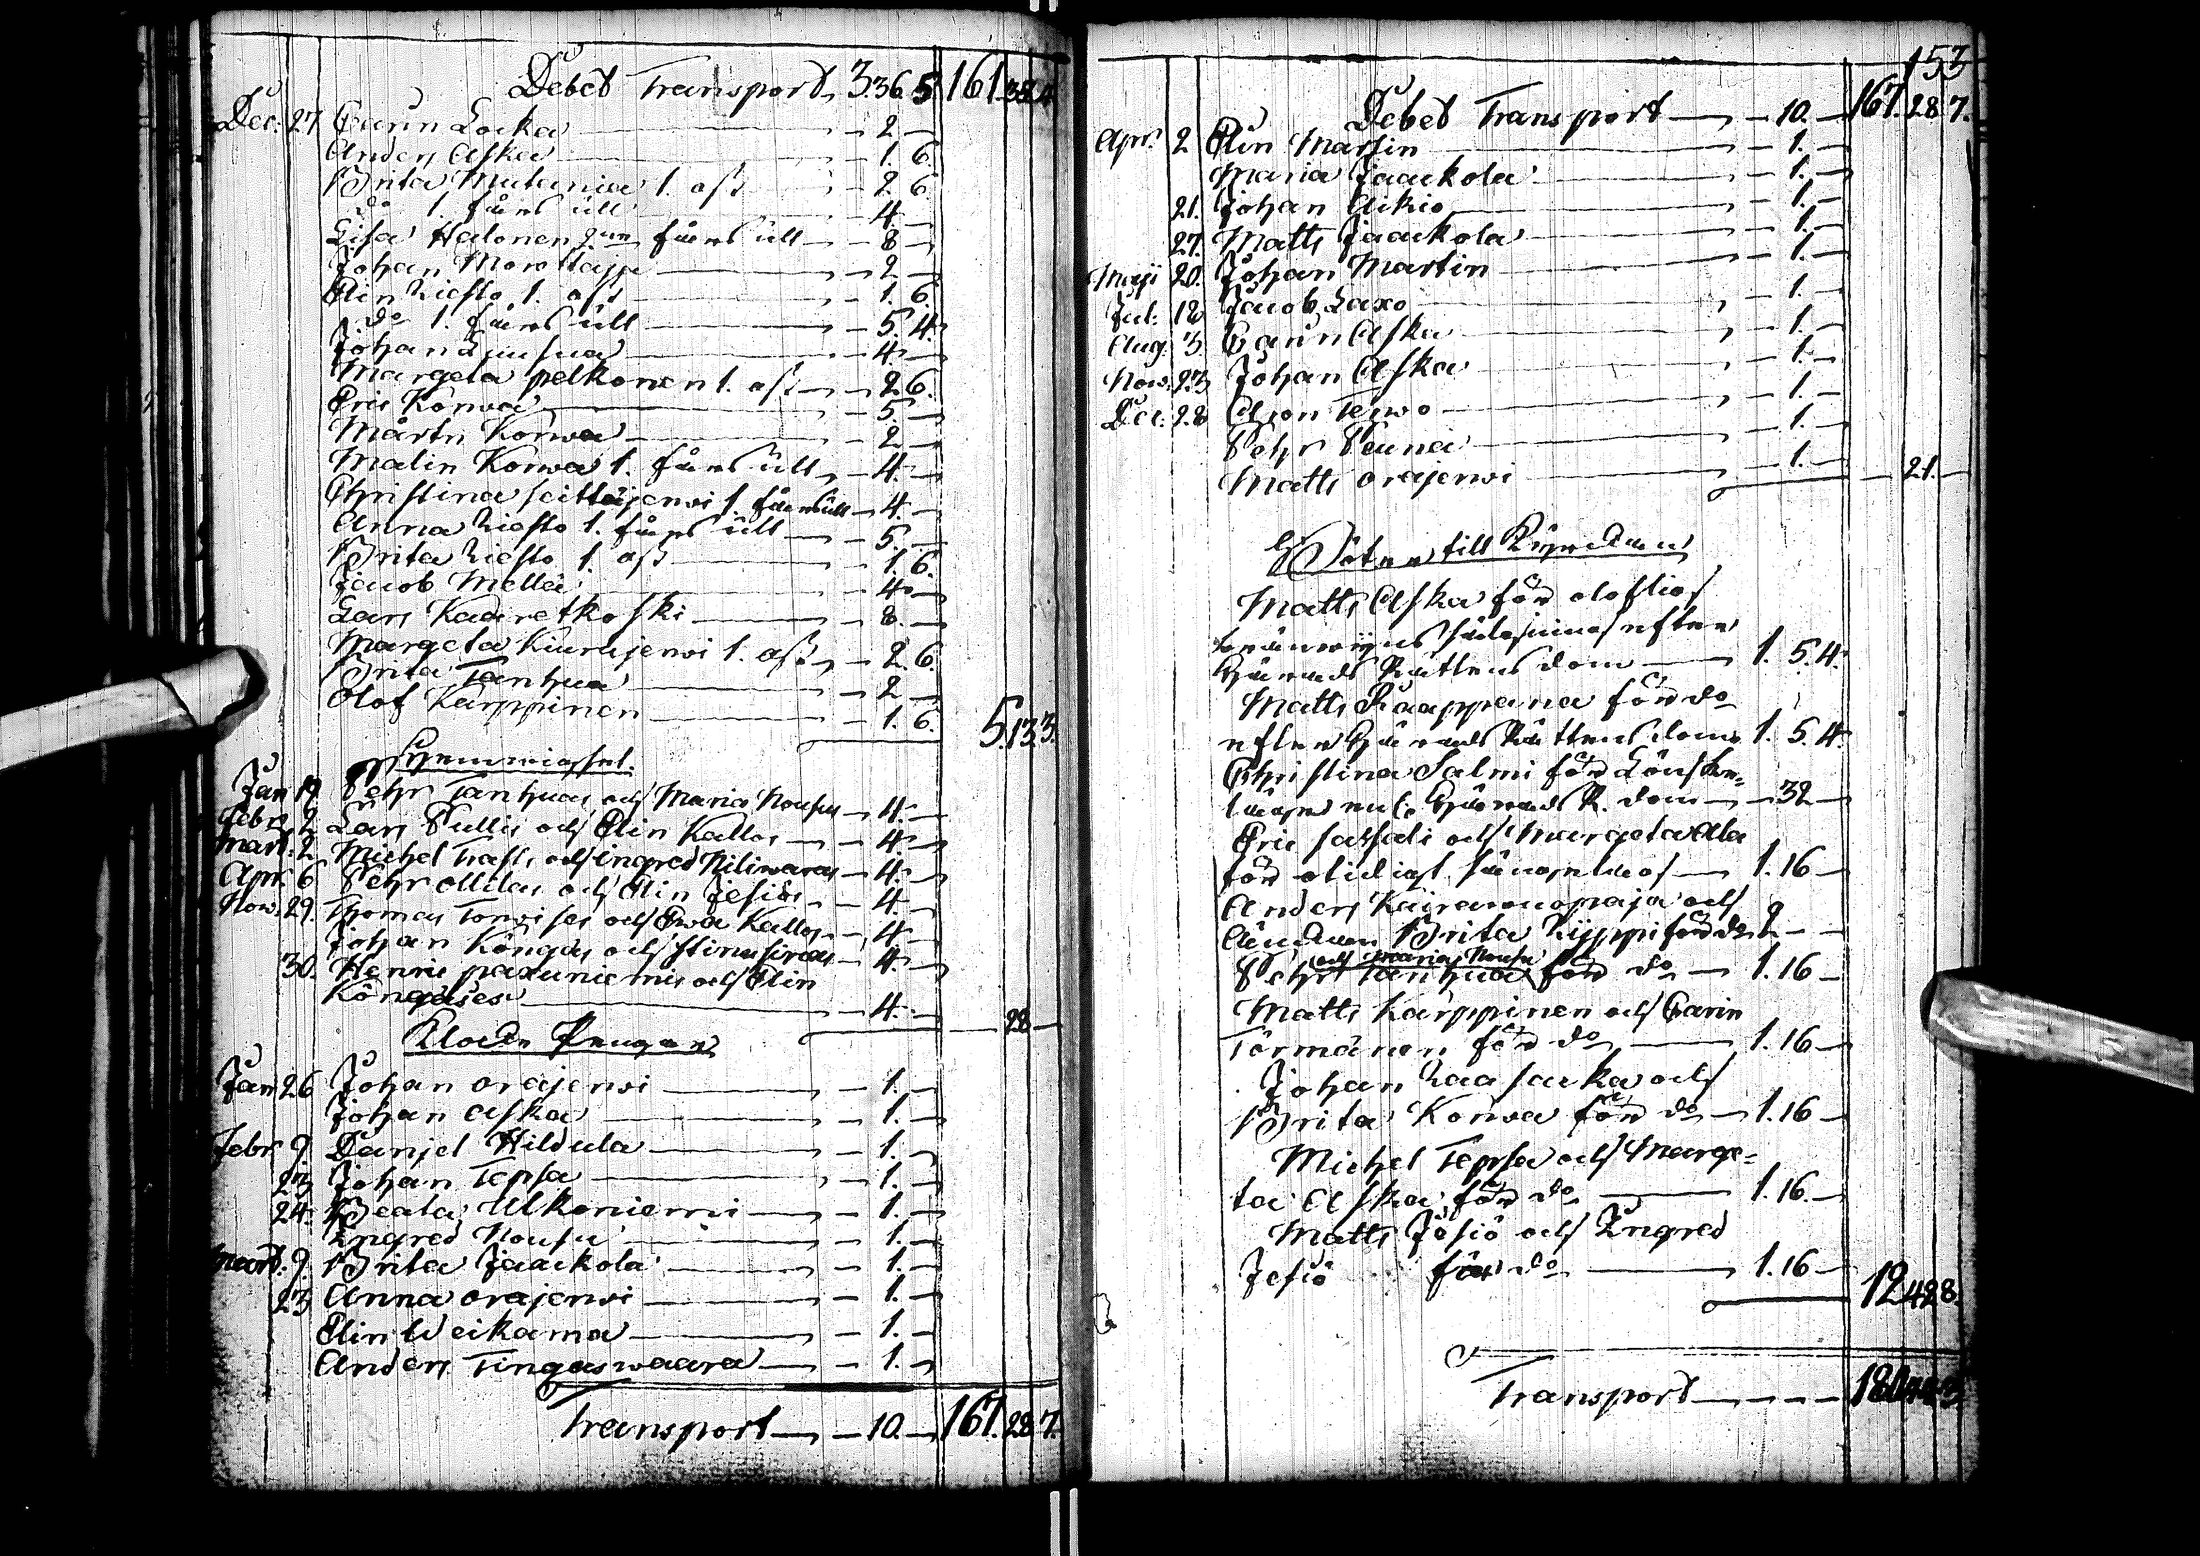 Debet Transport 3.36.5 161.
Dec. 27 Carin Locka — 2 —
Anders Aska — 1. 6.
Brita Mutenia 1. ost — 2. 6.
do 1. fårs ull — 4. —
Lisa Halonen 2 fårs ull — 8 —
Johan Morottaja — 2 —
Elin Liesto 1. ost — 1. 6.
do 1. fårs ull — 5. 4.
Johan — 4. —
Margeta pelkonen 1. ost — 2. 6.
Eric Korwa — 5. —
Mårtn Korwa — 2 —
Malin Korwa 1. fårs ull — 4. —
Christina saittajerwi 1. fårs ull — 4. —
Anna Liesto 1. fårs ull — 5. —
Brita Liesto 1. ost — 1. 6.
Jacob Mella — 4. —
Lars Kaaretkoski — 8. —
Margeta Kiurujerwi 1. ost — 2. 6.
Brita Tanhua — 2 —
Olof Karppinen — 1. 6. 5.13.3.
Jan 19 Pehr Tanhua och Maria Nousu — 4. —
Febr. 2 Lars Pullis och Elin Kallo — 4. —
Mart. 2 Michel Trast och ingred Niliwara — 4. —
Apr. 6 Pehr Ollila och Elin Jesiö — 4. —
Now. 29. Thomas och Ewa Kallo — 4. —
Johan Köngäs och Stina — 4. —
30. Henric paxuniemi och Elin
Köngäses — 4. — 28 —
Klocke Pengar
Jan 26 Johan orajerwi — 1. —
Johan Aska — 1. —
Febr 9. Danjel Hildula — 1. —
23 Johan Tepsa — 1. —
24. Beata Ulkoniemi — 1. —
Ingred Nousu — 1. —
Mart. 9. Brita Jaackola — 1. —
23 Anna orajerwi — 1. —
Elin Weikama — 1. —
Anders Tingaswaara — 1. —
Transport — 10. — 167. 28 7.
153
Debet Transport — 10. — 167. 28 7.
Apr. 2 Elin Martin — 1. —
Maria Jaackola — 1. —
21. Johan Aikio — 1. —
27. Matts Jaackola — 1. —
Maji 20. Johan Martin — 1. —
Jul. 12 Jacob Laxo — 1. —
Aug. 3 Carin Aska — 1. —
Now. 23 Johan Aska — 1. —
Dec. 28 Aron Terwo — 1. —
Pehr Peuna — 1. —
Matts orajerwi — 1. — 21. —
Böter till Kyrckan
Matts Aska för oloflig
bränwijns försäljning efter
Härads Rättens dom — 1. 5. 4.
Matts Raappana för do
efter Härads Rättens dom 1. 5. 4.
Christina Salmi för Lönska-
läge Härads R. dom — 32 —
Eric satsali och Margeta Ala
för otidigt sängelag — 1.16 —
Anders Kairawuopaja och
Änckan Brita Kyppi för do 2 — —
och Maria Nousu
Pehr Tanhua för do — 1.16 —
Matts Karppinen och Carin
Törmänen för do — 1.16 —
Johan och
Brita Korwa för do — 1.16 —
Michel Tepsa och Marge-
ta Aska för do — 1.16 —
Matts Jösiö och Ingred
Jesiö för do — 1.16 — 12.42 8.
Transport — — — —